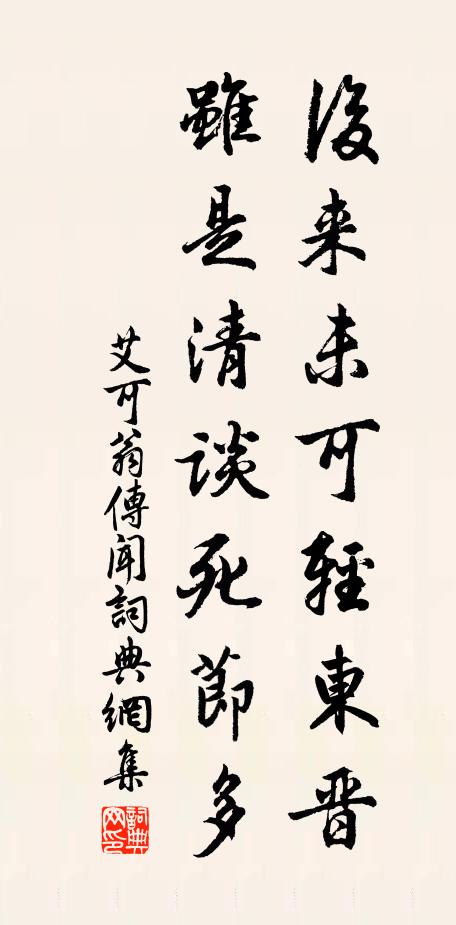 後来未可輕東晋
雖是清談死節多
艾可翁傳聞詞典網集
詞典
网印